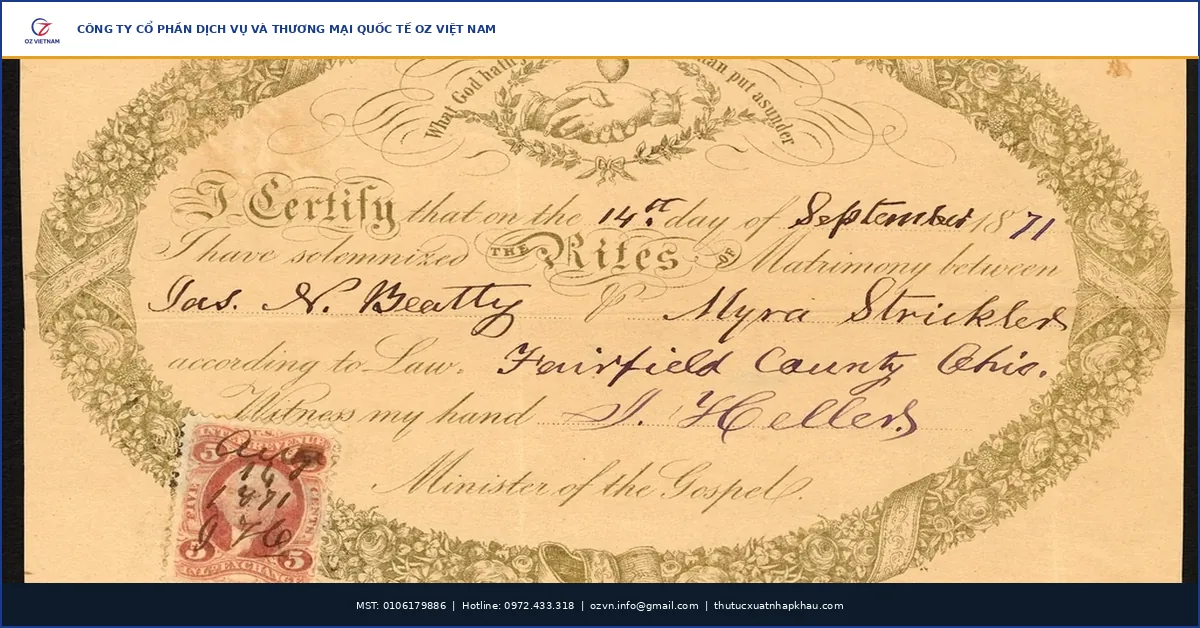 OZ VIETNAM
CÔNG TY CỔ PHẦN DỊCH VỤ VÀ THƯƠNG MẠI QUỐC TẾ OZ VIỆT NAM
What God hath
man put asunder
I Certify that on the 14.st day of September 1871
I have solemnized THE Rites OF Matrimony between
Jas. N. Beatty & Myra Strickler
according to Law. Fairfield County Ohio.
Witness my hand J. Heller
Minister of the Gospel.
INTER. REVENUE
5
FIVE CENTS
5 5
EXCHANGE
MST: 0106179886 | Hotline: 0972.433.318 | ozvn.info@gmail.com | thutucxuatnhapkhau.com